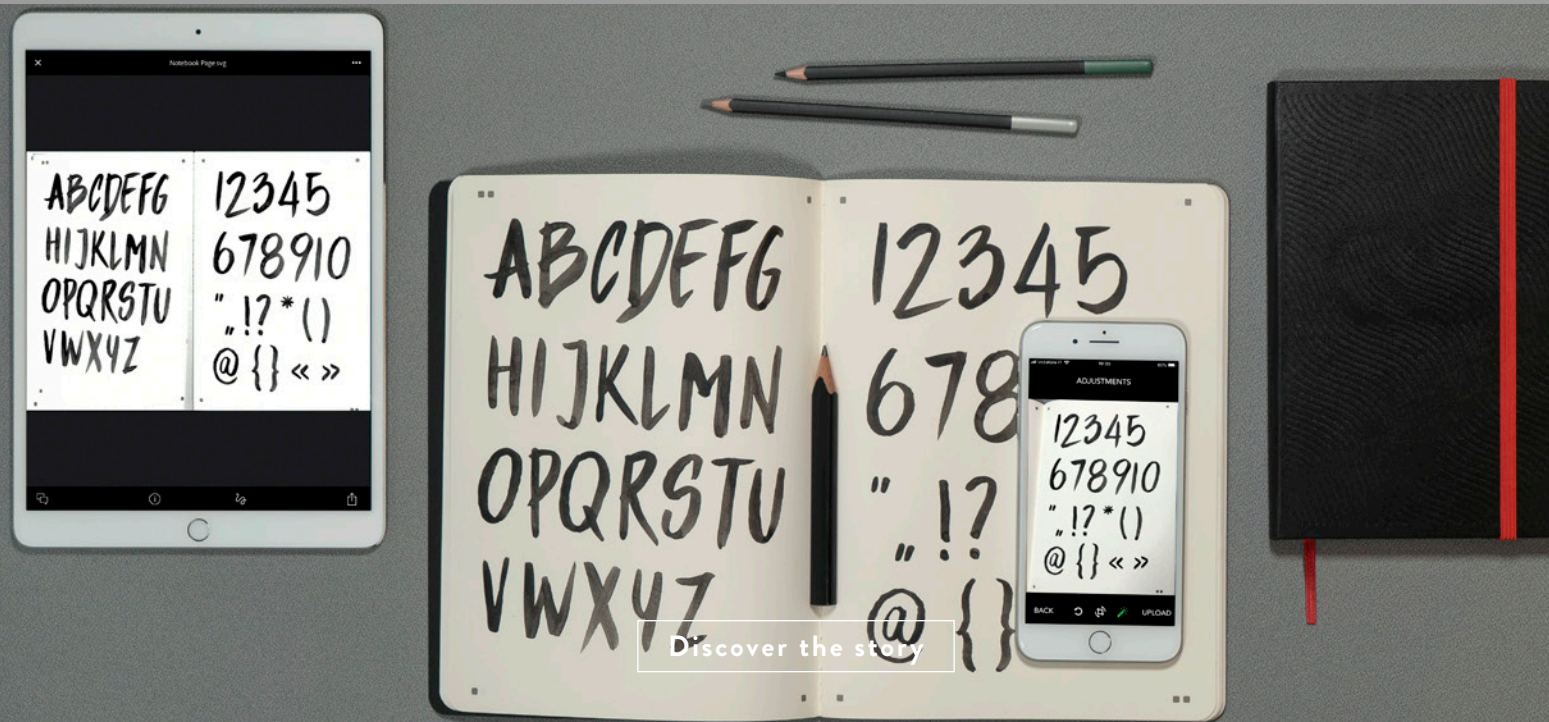 Notebook Page.svg
ABCDEFG
HIJKLMN
OPQRSTU
VWXYZ
12345
678910
" „ !? * ( )
@ { } « »
ABCDEFG
HIJKLMN
OPQRSTU
VWXYZ
12345
678
" „ !?
@ { }
ADJUSTMENTS
12345
678910
" „ !? * ( )
@ { } « »
BACK UPLOAD
Discover the story